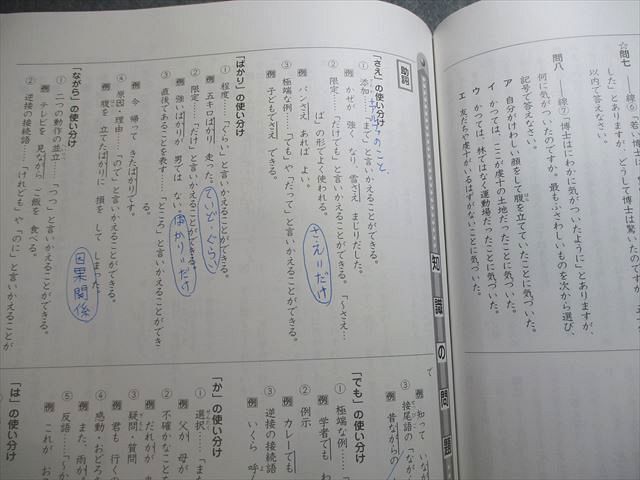 ☆問七
した」とありますが、どうして博士は驚いたのですか。
以内で答えなさい。
問八 ――線⑦「博士はにわかに気がついたように」とありますが、
何に気がついたのですか。最もふさわしいものを次から選び、
記号で答えなさい。
ア 自分がけわしい顔をして腹を立てていたことに気づいた。
イ かつては、ここが虔十の土地だったことに気づいた。
ウ かつては、林ではなく運動場だったことに気づいた。
エ 友だちや虔十がいるはずがないことに気づいた。
知識の問題
助詞
「さえ」の使い分け
① 添加…「まで」と言いかえることができる。
例 かぜが 強く なり、雪さえ まじりだした。
② 限定…「だけでも」と言いかえることができる。「〜さえ…
ば」の形でよく使われる。
例 パンさえ あれば よい。
さえ=だけ
③ 極端な例…「でも」や「だって」と言いかえることができる。
例 子どもでさえ できる。
「ばかり」の使い分け
① 程度…「ぐらい」と言いかえることができる。
例 五キロばかり 走った。
ていど・ぐらい
② 限定…「だけ」と言いかえることができる。
例 強いばかりが 男では ない。
ばかり=だけ
③ 直後であることを表す…「ところ」と言いかえることができ
る。
例 今 帰って きたばかりです。
④ 原因・理由…「ので」と言いかえることができる。
例 腹を 立てたばかりに 損を して しまった。
因果関係
「ながら」の使い分け
① 二つの動作の並立…「つつ」と言いかえることができる。
例 テレビを 見ながら ご飯を 食べる。
② 逆接の接続語…「けれども」や「のに」と言いかえることが
で
例 知って いなが
③ 接尾語の「なが
例 昔ながらの
「でも」の使い分け
① 極端な例…
例 学者でも わ
② 例示
例 カレーでも
③ 逆接の接続語
例 いくら 呼
「か」の使い分け
① 選択…「また
例 父か 母が
② 不確かなことを
例 だれかが
③ 疑問・質問
例 君も 行くの
④ 感動・おどろき
例 また 雨か
⑤ 反語…「〜か
例 これが お
「は」の使い分け